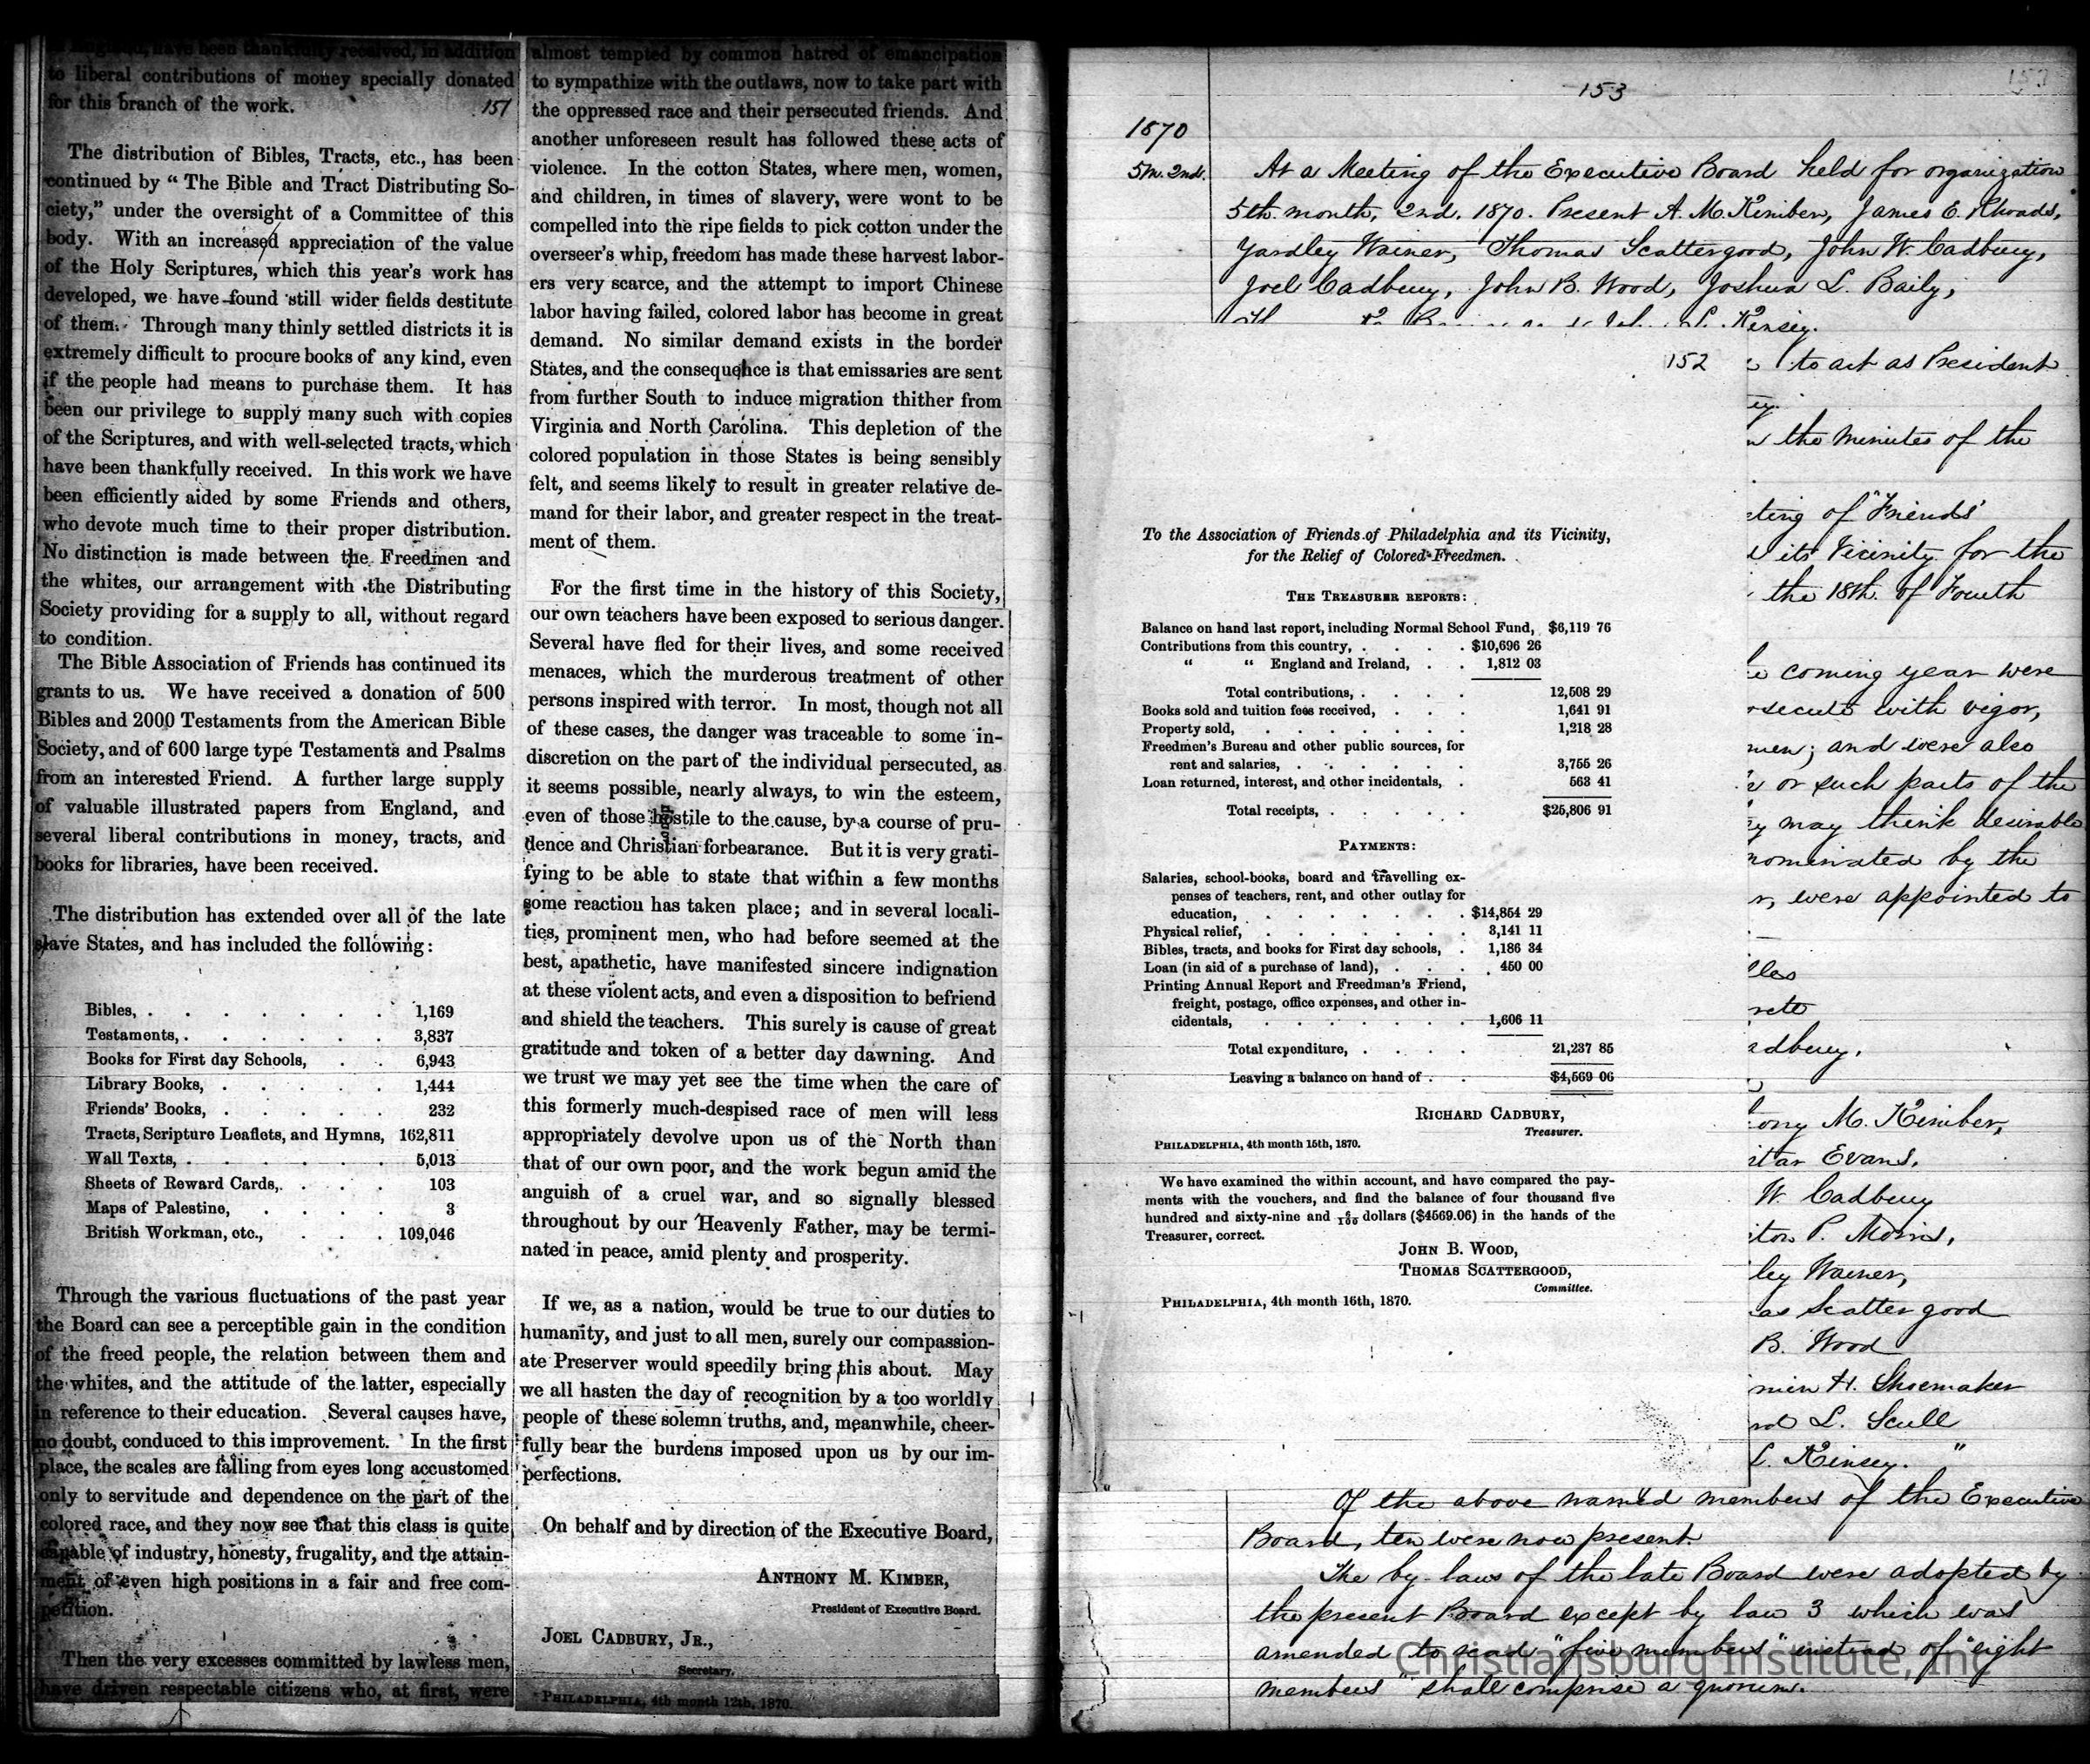 in England, have been thankfully received, in addition
to liberal contributions of money specially donated
for this branch of the work.
151
The distribution of Bibles, Tracts, etc., has been
continued by “ The Bible and Tract Distributing So-
ciety,” under the oversight of a Committee of this
body. With an increased appreciation of the value
of the Holy Scriptures, which this year's work has
developed, we have found still wider fields destitute
of them. Through many thinly settled districts it is
extremely difficult to procure books of any kind, even
if the people had means to purchase them. It has
been our privilege to supply many such with copies
of the Scriptures, and with well-selected tracts, which
have been thankfully received. In this work we have
been efficiently aided by some Friends and others,
who devote much time to their proper distribution.
No distinction is made between the Freedmen and
the whites, our arrangement with the Distributing
Society providing for a supply to all, without regard
to condition.
The Bible Association of Friends has continued its
grants to us. We have received a donation of 500
Bibles and 2000 Testaments from the American Bible
Society, and of 600 large type Testaments and Psalms
from an interested Friend. A further large supply
of valuable illustrated papers from England, and
several liberal contributions in money, tracts, and
books for libraries, have been received.
The distribution has extended over all of the late
slave States, and has included the following:
Bibles, . . . . . . . 1,169
Testaments, . . . . . . 3,837
Books for First day Schools, . . 6,943
Library Books, . . . . . 1,444
Friends' Books, . . . . . 232
Tracts, Scripture Leaflets, and Hymns, 162,811
Wall Texts, . . . . . . 5,013
Sheets of Reward Cards, . . . 103
Maps of Palestine, . . . . 3
British Workman, etc., . . . 109,046
Through the various fluctuations of the past year
the Board can see a perceptible gain in the condition
of the freed people, the relation between them and
the whites, and the attitude of the latter, especially
in reference to their education. Several causes have,
no doubt, conduced to this improvement. In the first
place, the scales are falling from eyes long accustomed
only to servitude and dependence on the part of the
colored race, and they now see that this class is quite
capable of industry, honesty, frugality, and the attain-
ment of even high positions in a fair and free com-
petition.
Then the very excesses committed by lawless men,
have driven respectable citizens who, at first, were
almost tempted by common hatred of emancipation
to sympathize with the outlaws, now to take part with
the oppressed race and their persecuted friends. And
another unforeseen result has followed these acts of
violence. In the cotton States, where men, women,
and children, in times of slavery, were wont to be
compelled into the ripe fields to pick cotton under the
overseer's whip, freedom has made these harvest labor-
ers very scarce, and the attempt to import Chinese
labor having failed, colored labor has become in great
demand. No similar demand exists in the border
States, and the consequence is that emissaries are sent
from further South to induce migration thither from
Virginia and North Carolina. This depletion of the
colored population in those States is being sensibly
felt, and seems likely to result in greater relative de-
mand for their labor, and greater respect in the treat-
ment of them.
For the first time in the history of this Society,
our own teachers have been exposed to serious danger.
Several have fled for their lives, and some received
menaces, which the murderous treatment of other
persons inspired with terror. In most, though not all
of these cases, the danger was traceable to some in-
discretion on the part of the individual persecuted, as
it seems possible, nearly always, to win the esteem,
even of those hostile to the cause, by a course of pru-
dence and Christian forbearance. But it is very grati-
fying to be able to state that within a few months
some reaction has taken place; and in several locali-
ties, prominent men, who had before seemed at the
best, apathetic, have manifested sincere indignation
at these violent acts, and even a disposition to befriend
and shield the teachers. This surely is cause of great
gratitude and token of a better day dawning. And
we trust we may yet see the time when the care of
this formerly much-despised race of men will less
appropriately devolve upon us of the North than
that of our own poor, and the work begun amid the
anguish of a cruel war, and so signally blessed
throughout by our Heavenly Father, may be termi-
nated in peace, amid plenty and prosperity.
If we, as a nation, would be true to our duties to
humanity, and just to all men, surely our compassion-
ate Preserver would speedily bring this about. May
we all hasten the day of recognition by a too worldly
people of these solemn truths, and, meanwhile, cheer-
fully bear the burdens imposed upon us by our im-
perfections.
On behalf and by direction of the Executive Board,
ANTHONY M. KIMBER,
President of Executive Board.
JOEL CADBURY, JR.,
Secretary.
PHILADELPHIA, 4th month 12th, 1870.
153
1870
5m. 2nd. At a Meeting of the Executive Board held for organization
5th month, 2nd. 1870. Present A. M. Kimber, James E. Rhoads,
Yardley Warner, Thomas Scattergood, John W. Cadbury,
Joel Cadbury, John B. Wood, Joshua L. Baily,
Kinsey.
152
to act as President
the minutes of the
ting of "Friends'
its Vicinity for the
the 18th. of Fourth
coming year were
rsecute with vigor,
men; and were also
or such parts of the
may think desirable
nominated by the
were appointed to
adbury,
ony M. Kimber,
Evans,
W. Cadbury
ton P. Morris,
ley Warner,
as Scattergood
B. Wood
min H. Shoemaker
L. Scull
L. Kinsey. "
To the Association of Friends of Philadelphia and its Vicinity,
for the Relief of Colored Freedmen.
THE TREASURER REPORTS:
Balance on hand last report, including Normal School Fund, $6,119 76
Contributions from this country, . . . . $10,696 26
“ “ England and Ireland, . . 1,812 03
Total contributions, . . . . 12,508 29
Books sold and tuition fees received, . . . 1,641 91
Property sold, . . . . . . . 1,218 28
Freedmen's Bureau and other public sources, for
rent and salaries, . . . . . . 3,755 26
Loan returned, interest, and other incidentals, . 563 41
Total receipts, . . . . . $25,806 91
PAYMENTS:
Salaries, school-books, board and travelling ex-
penses of teachers, rent, and other outlay for
education, . . . . . . . $14,854 29
Physical relief, . . . . . . . 3,141 11
Bibles, tracts, and books for First day schools, . 1,186 34
Loan (in aid of a purchase of land), . . . 450 00
Printing Annual Report and Freedman's Friend,
freight, postage, office expenses, and other in-
cidentals, . . . . . . . 1,606 11
Total expenditure, . . . . 21,237 85
Leaving a balance on hand of . . $4,569 06
RICHARD CADBURY,
Treasurer.
PHILADELPHIA, 4th month 15th, 1870.
We have examined the within account, and have compared the pay-
ments with the vouchers, and find the balance of four thousand five
hundred and sixty-nine and 6/100 dollars ($4569.06) in the hands of the
Treasurer, correct.
JOHN B. WOOD,
THOMAS SCATTERGOOD,
Committee.
PHILADELPHIA, 4th month 16th, 1870.
Of the above named members of the Executive
Board, ten were now present.
The by-laws of the late Board were adopted by
the present Board except by law 3 which was
amended to read "five members" instead of "eight
members" shall comprise a quorum.
Christiansburg Institute, Inc